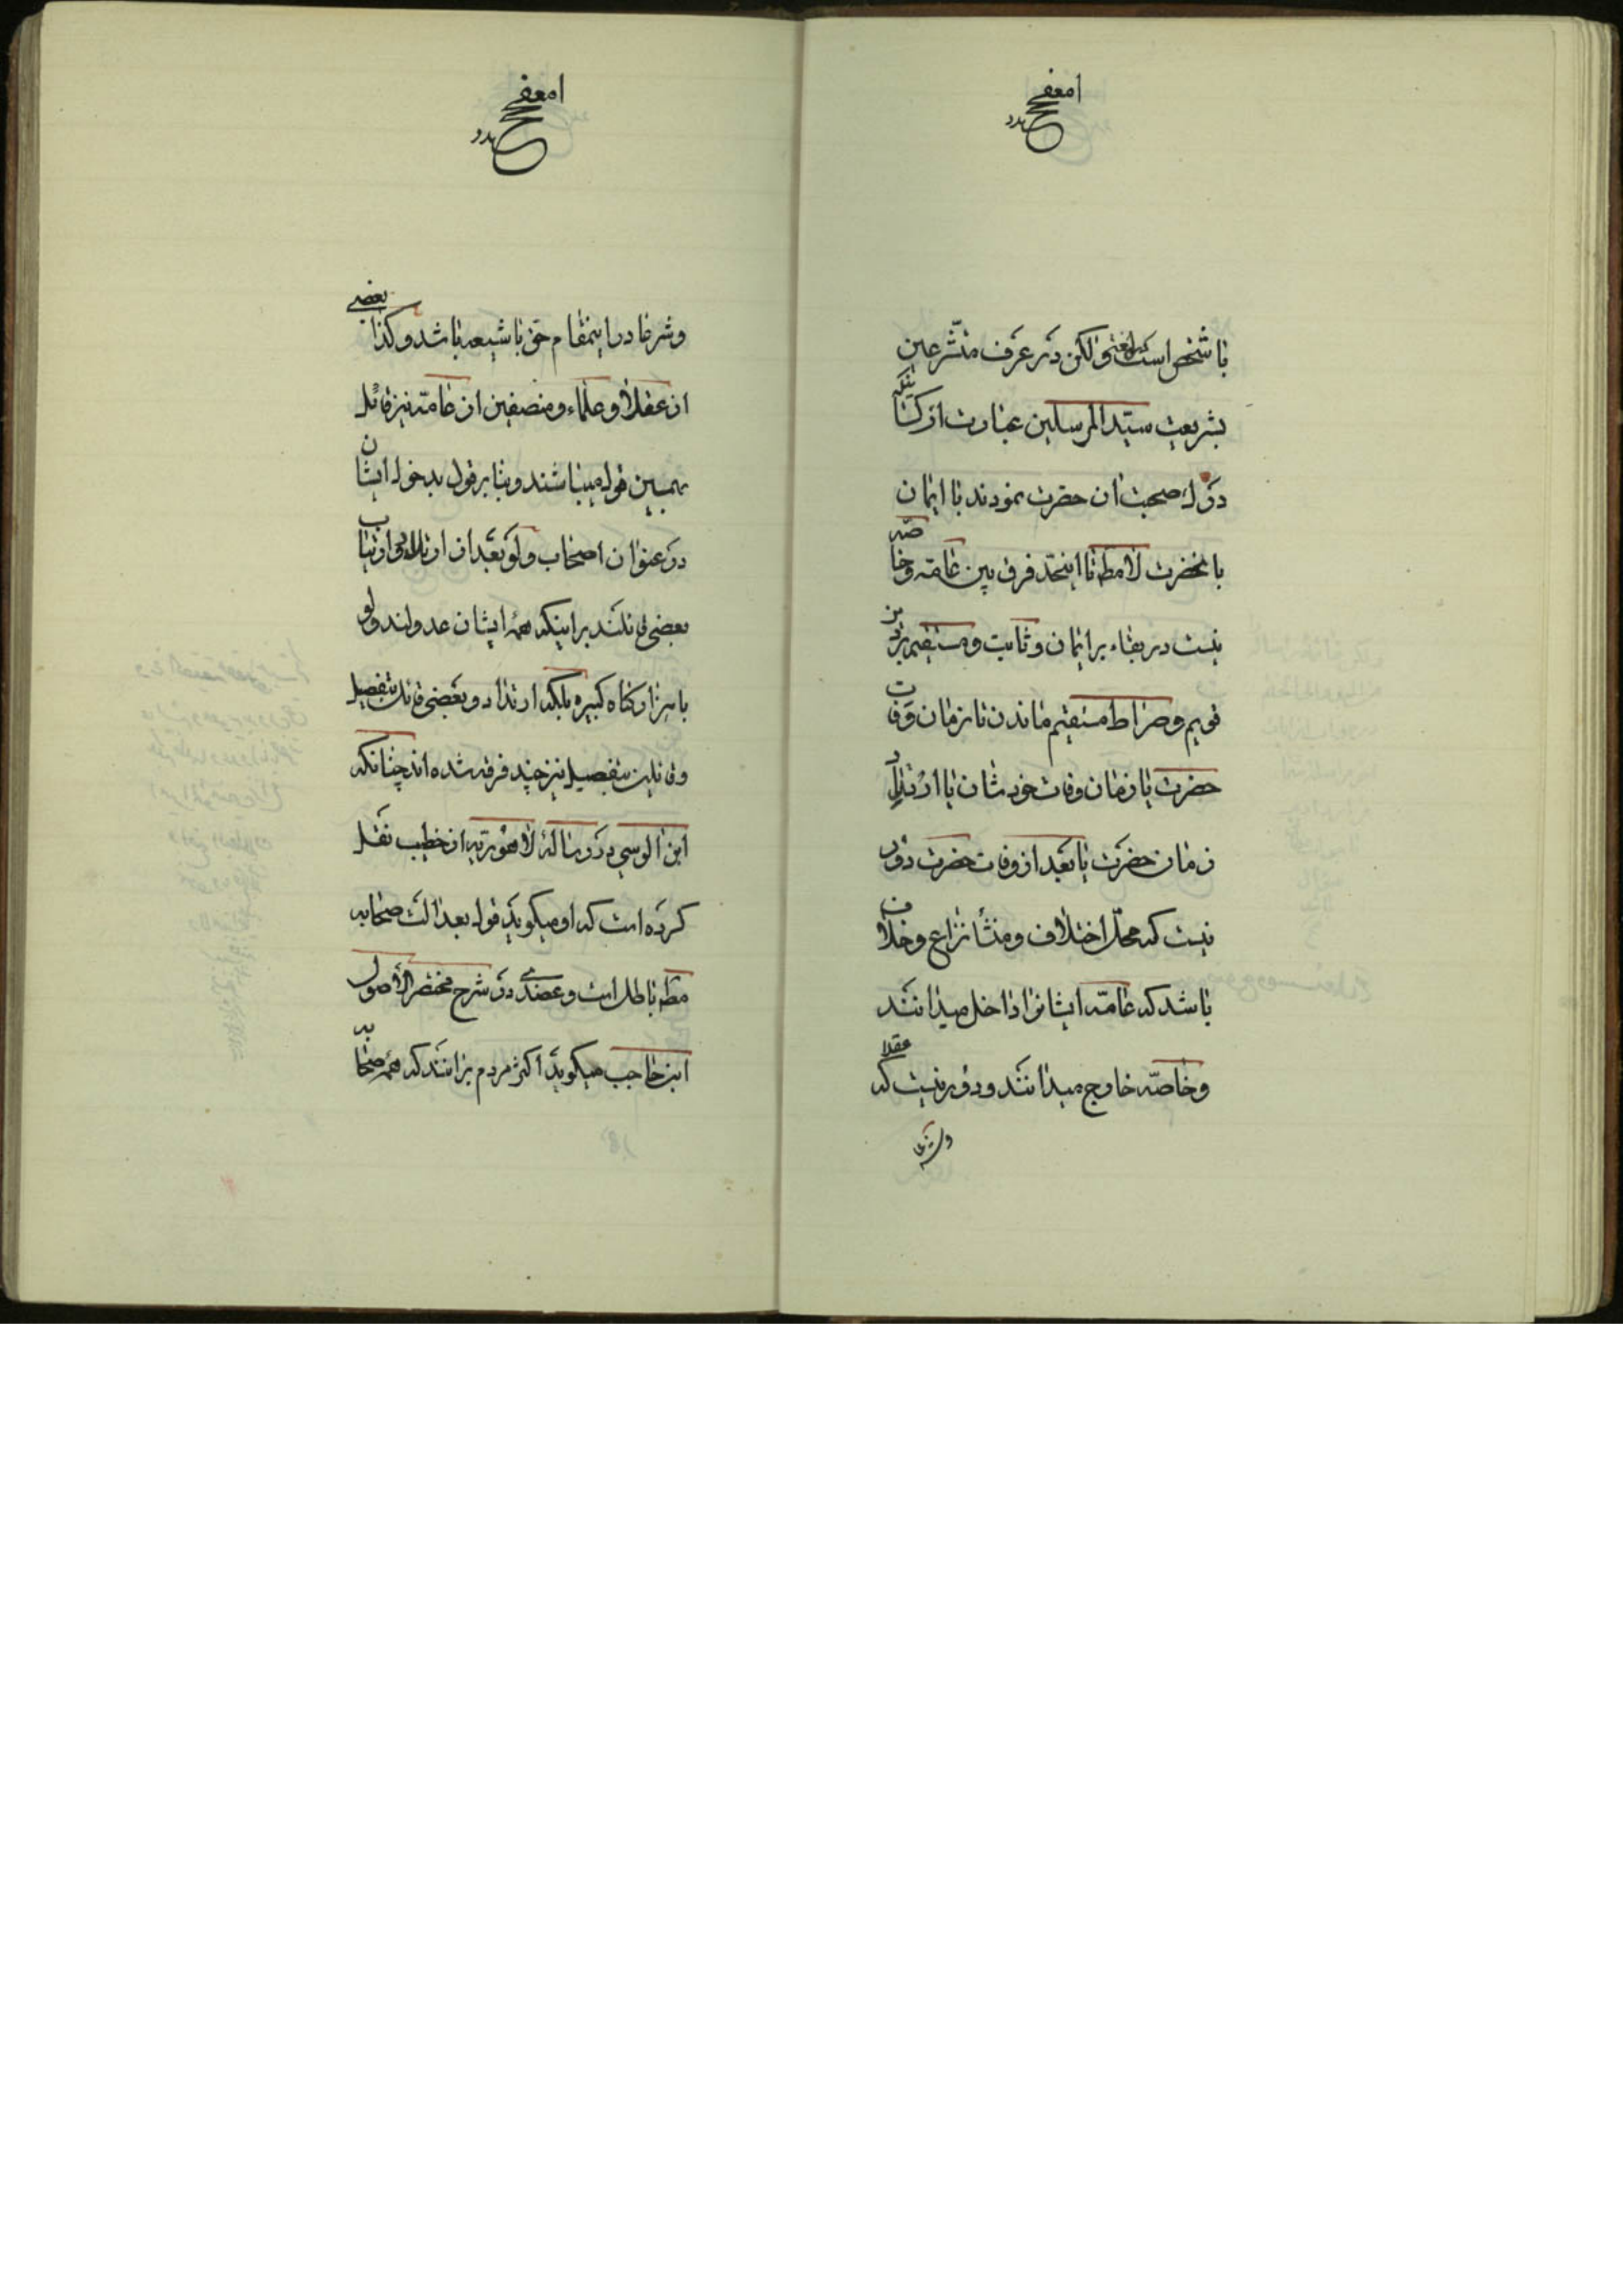 با شخص است لغة ولکن در عرف متشرعین
بشریعت سید المرسلین عبارت از کسانیکه
درک صحبت ان حضرت نمودند با ایمان
بانحضرت لامطه تا اینحد فرق بین عامه وخاصه
نیست در بقاء بر ایمان وثابت ومستقیم بر دین
قویم وصراط مستقیم ماندن تا زمان وفات
حضرت یا زمان وفات خودشان یا ارتداد
زمان حضرت یا بعد از وفات حضرت دور
نیست که محل اختلاف ومنشأ نزاع وخلاف
باشد که عامه ایشانرا داخل میدانند
وخاصه خارج میدانند ودور نیست که عقلا
وشرعا
وشرعا در اینمقام حق با شیعه باشد وکذا بعضی
از عقلاء وعلماء ومنصفین از عامه نیز قائل
بهمین قول میباشند وبنا بر قول بدخول ایشان
در عنوان اصحاب ولو بعد از ارتداد وارتیاب
بعضی قائلند بر اینکه همۀ ایشان عدولند ولو
با هزار کناه کبیره بلکه ارتداد وبعضی قائل بتفصیل
وقائلین بتفصیل نیز چند فرقه شده اند چنانکه
ابن الوسی در رسالۀ لاهوریه از خطیب نقل
کرده است که او میکوید قول بعدالت صحابه
مطه باطل است وعضدی در شرح مختصر الاصول
ابن حاجب میکوید اکثر مردم برانند که همۀ صحابه